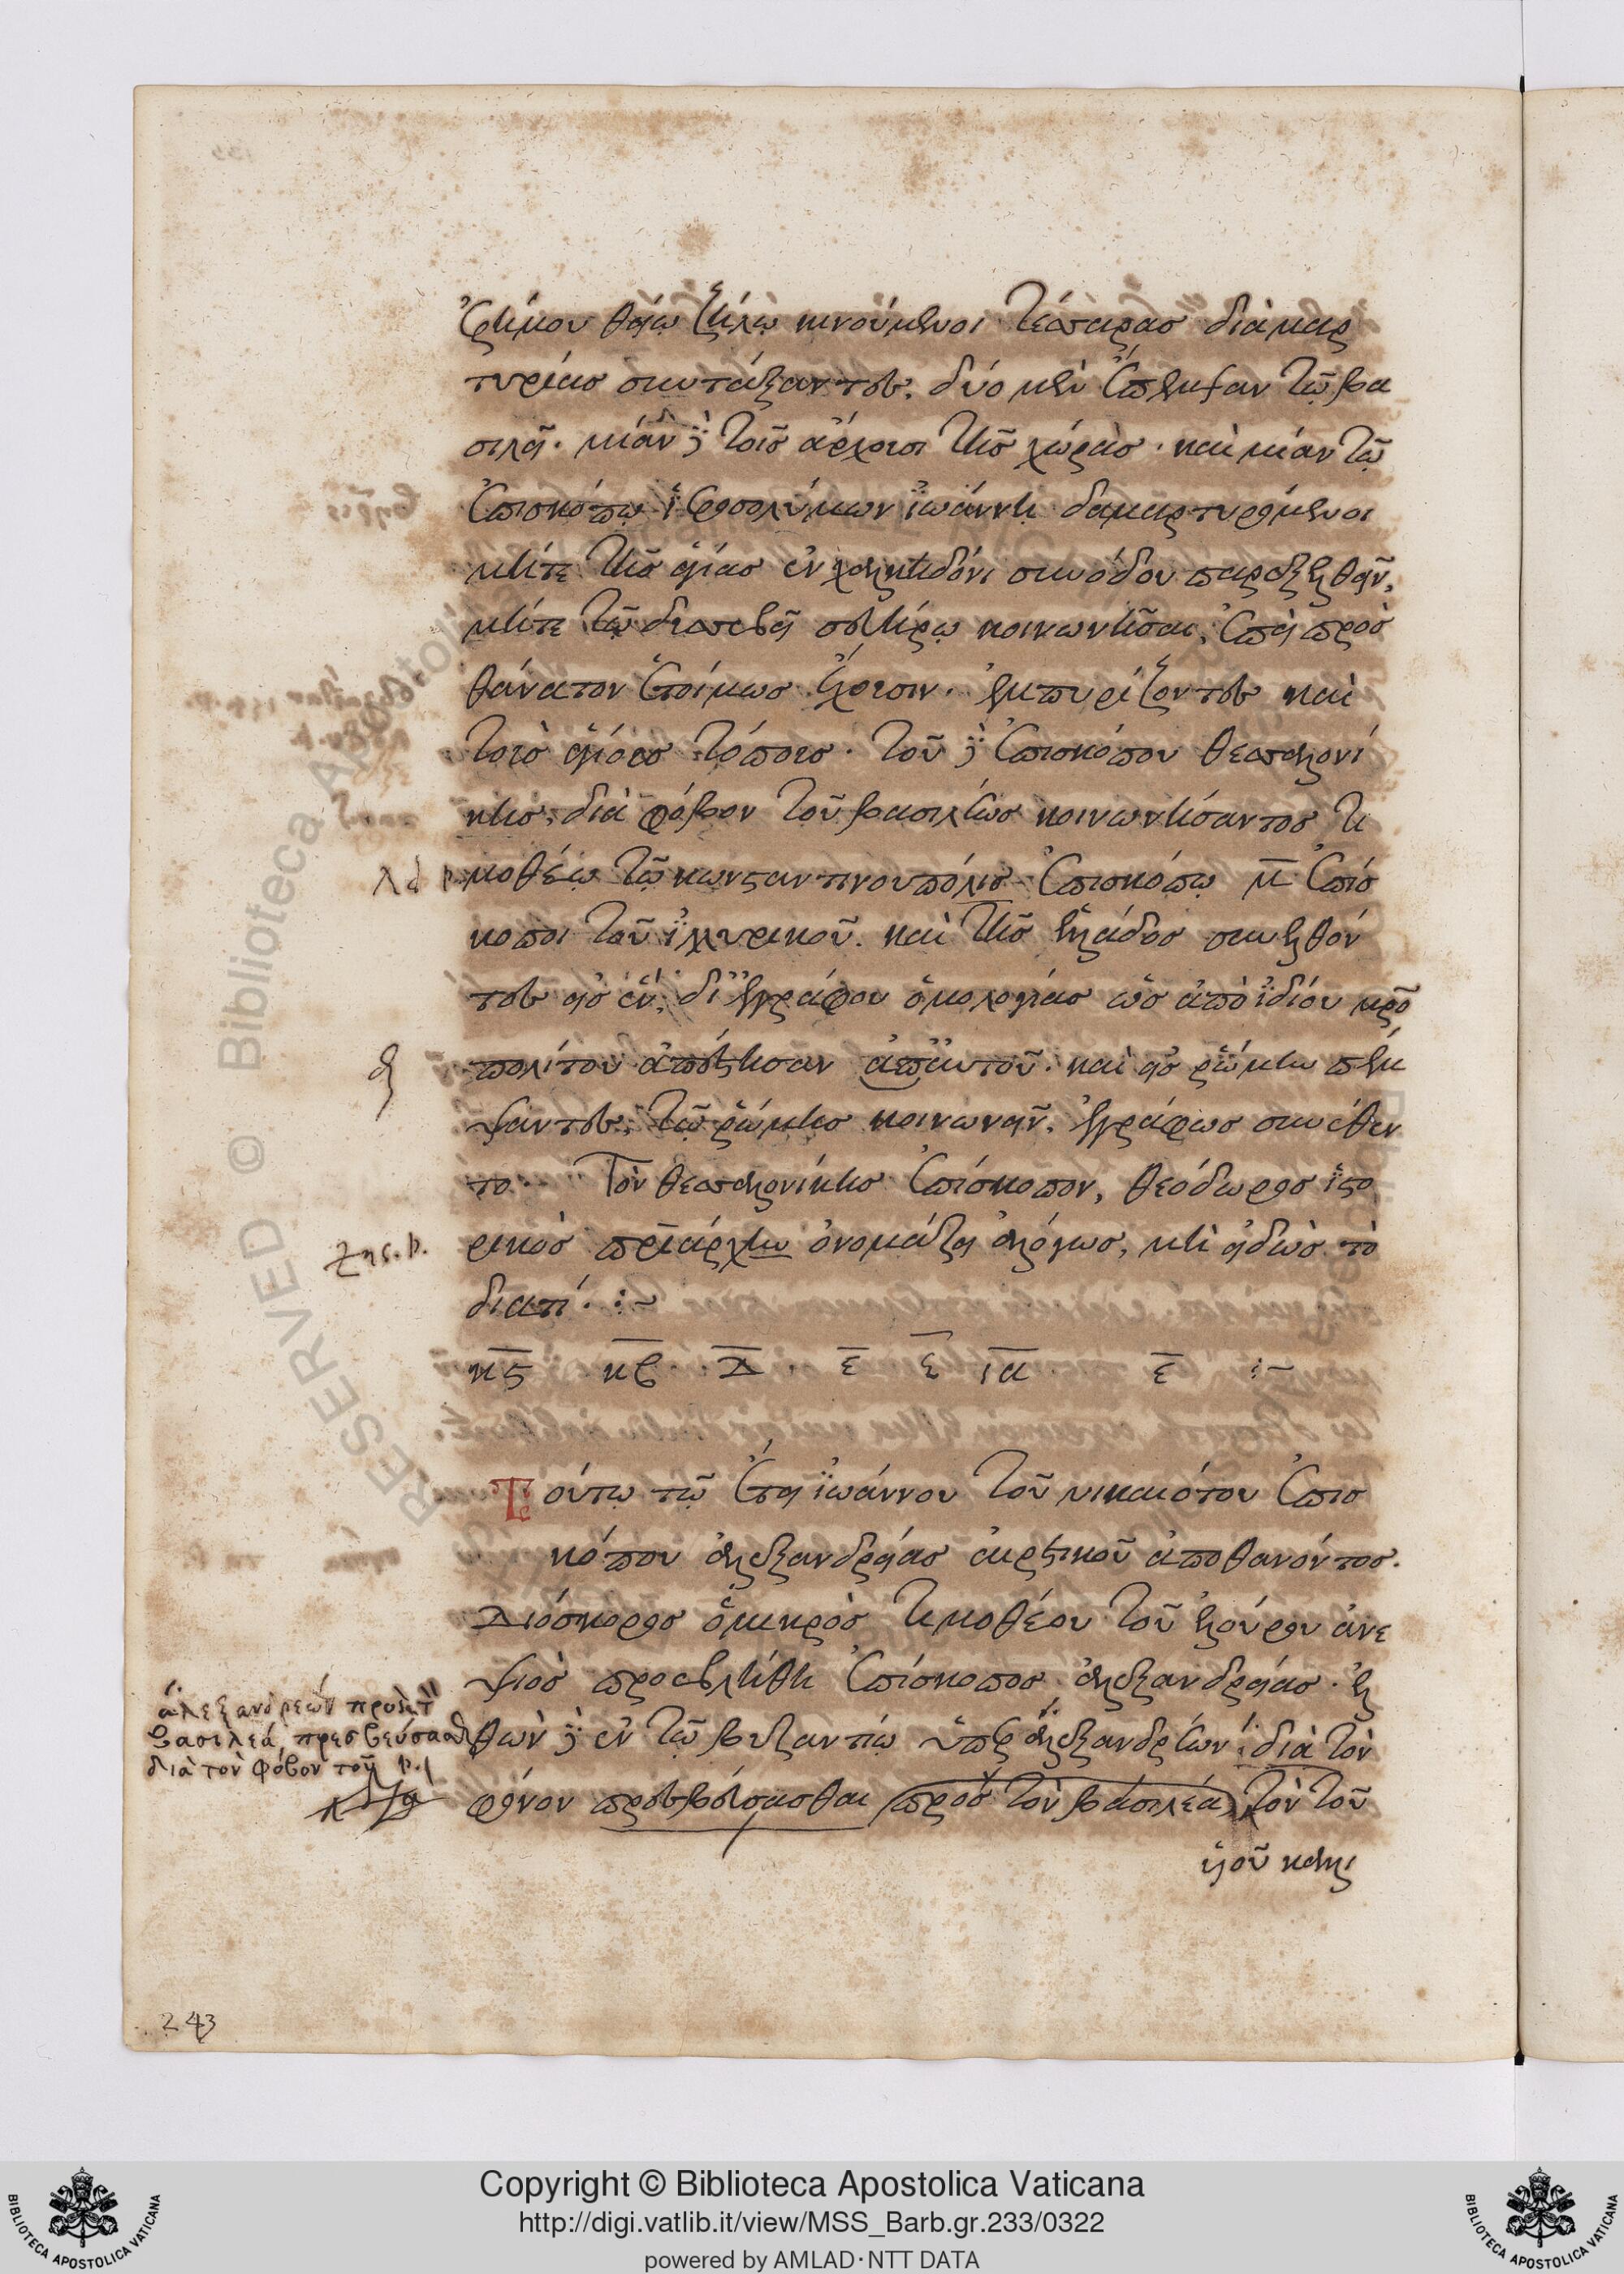 ἐρήμου θείω ζήλω κινούμενοι τέσσαρας διαμαρ
τυρίας συντάξαντες, δύο μὲν ἔπεμψαν τῶ βα
σιλεῖ. μίαν δὲ τοῖς ἄρχουσι τῆς χώρας. καὶ μίαν τῶ
ἐπισκόπω ἱεροσολύμων ἰωάννη διαμαρτυρόμενοι
μήτε τῆς ἁγίας ἐν χαλκηδόνι συνόδου παρεξελθεῖν,
μήτε τῶ δυσσεβεῖ σευήρω κοινωνῆσαι, ἐπεὶ πρὸς
θάνατον ἑτοίμως ἔχουσιν. ἐμπυρίζοντες καὶ
τοὺς ἁγίους τόπους. τοῦ δὲ ἐπισκόπου θεσσαλονί
κης, διὰ φόβον τοῦ βασιλέως κοινωνήσαντος τι
μοθέω τῶ κωνσταντινουπόλεως ἐπισκόπω μ̄ ἐπίσ
κοποι τοῦ ἰλλυρικοῦ. καὶ τῆς ἑλλάδος συνελθόν
τες εἰς ἕν, δι' ἐγγράφου ὁμολογίας ὡς ἀπὸ ἰδίου μρο
πολίτου ἀπέστησαν ἀπ' αὐτοῦ. καὶ εἰς ῥώμην πέμ
ψαντες, τῶ ῥώμης κοινωνεῖν, ἐγγράφως συνέθεν
το. Τὸν θεσσαλονίκης ἐπίσκοπον, θεόδωρος ἱστο
ρικὸς πριάρχην ὀνομάζει ἀλόγως, μὴ εἰδὼς τὸ
διατί. :~
κς κβ. Δ. ε ε ια. ε :~
Τούτω τῶ ἔτει ἰωάννου τοῦ νικαιώτου ἐπισ
κόπου ἀλεξανδρείας αἱρετικοῦ ἀποθανόντος.
Διόσκορος ὁ μικρὸς τιμοθέου τοῦ ἐλούρου ἀνε
ψιὸς προεβλήθη ἐπίσκοπος ἀλεξανδρείας. ἐλ
θὼν δὲ ἐν τῶ βυζαντίω ὑπὲρ ἀλεξανδρέων διὰ τὸν
φόνον πρεσβεύσασθαι πρὸς τὸν βασιλέα, τὸν τοῦ
υἱοῦ καλλι
ἀλεξανδρεων πρὸς τ
βασιλεά, πρεσβεύσασθ
διὰ τὸν φόβον τοῦ
243
RESERVED © Biblioteca Apostolica
Copyright © Biblioteca Apostolica Vaticana
http://digi.vatlib.it/view/MSS_Barb.gr.233/0322
powered by AMLAD·NTT DATA
BIBLIOTECA APOSTOLICA VATICANA
BIBLIOTECA APOSTOLICA VATICANA